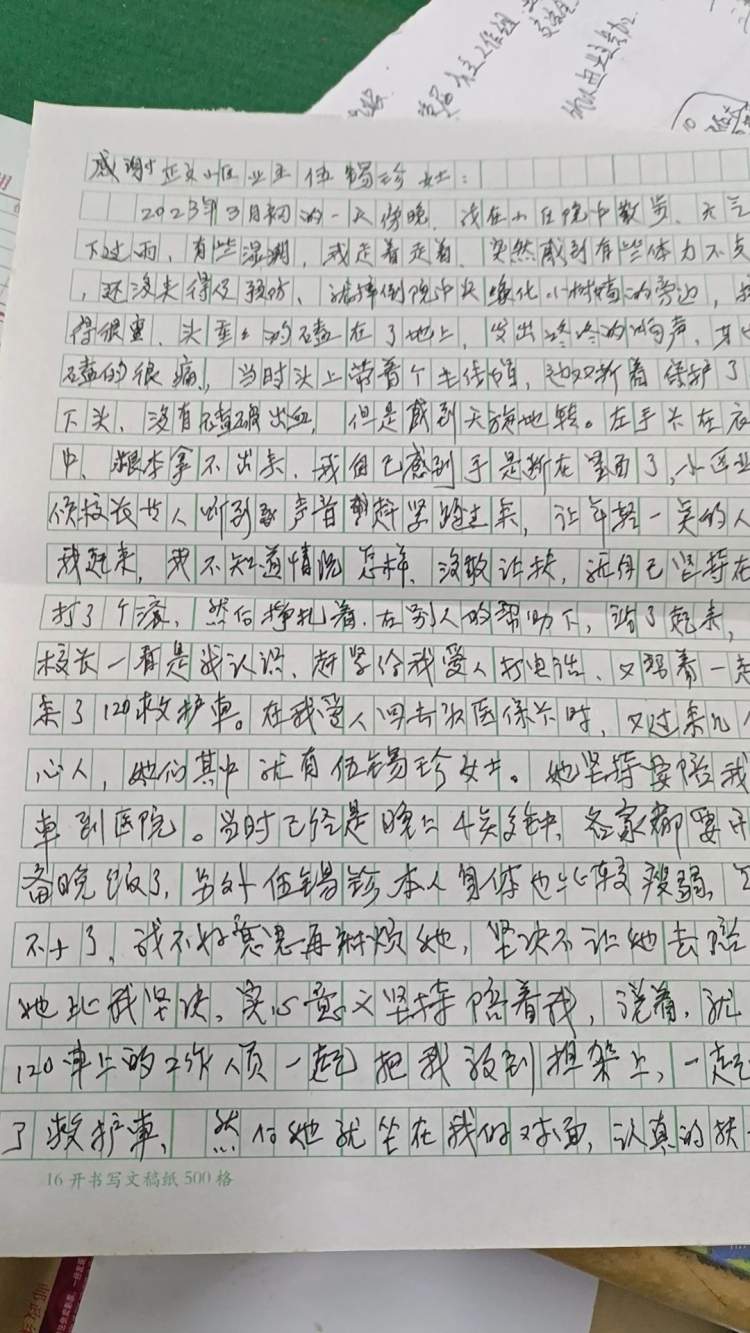 感谢 小区业主伍锡珍女士：
2023年3月初的一天傍晚，我在小区院中散步，天气
下过雨，有些湿潮，我走着走着，突然感到有些体力不
，还没来得及预防，就摔倒在院中央绿化小树墙的旁边，
得很重，头重重的磕在了地上，发出咚咚的响声，
磕的很痛，当时头上带着个毛线帽，
下头，没有磕破出血，但是感到天旋地转。左手卡在衣
中，根本拿不出来，我自己感到手是断在里面了，小区业
侯校长女人听到声音赶紧跑过来，让年轻一点的人
我起来，我不知道情况怎样，没敢让扶，就自己坚持在
打了个滚，然后挣扎着，在别人的帮助下，站了起来，
校长一看是我认识，赶紧给我爱人打电话，又帮着一起
来了120救护车。在我爱人回去取医保卡时，又过来几
心人，她们其中就有伍锡珍女士。她坚持要陪我
车到医院。当时已经是晚上 点多钟，各家都要
备晚饭了，另外伍锡珍本人身体也比较瘦弱，
不十了，我不好意思再麻烦她，坚决不让她去陪
她比我坚决，实心意又坚持陪着我，说着，就
120车上的工作人员一起把我放到担架上，一起
了救护车，然后她就坐在我的对面，认真的扶
16开书写文稿纸500格